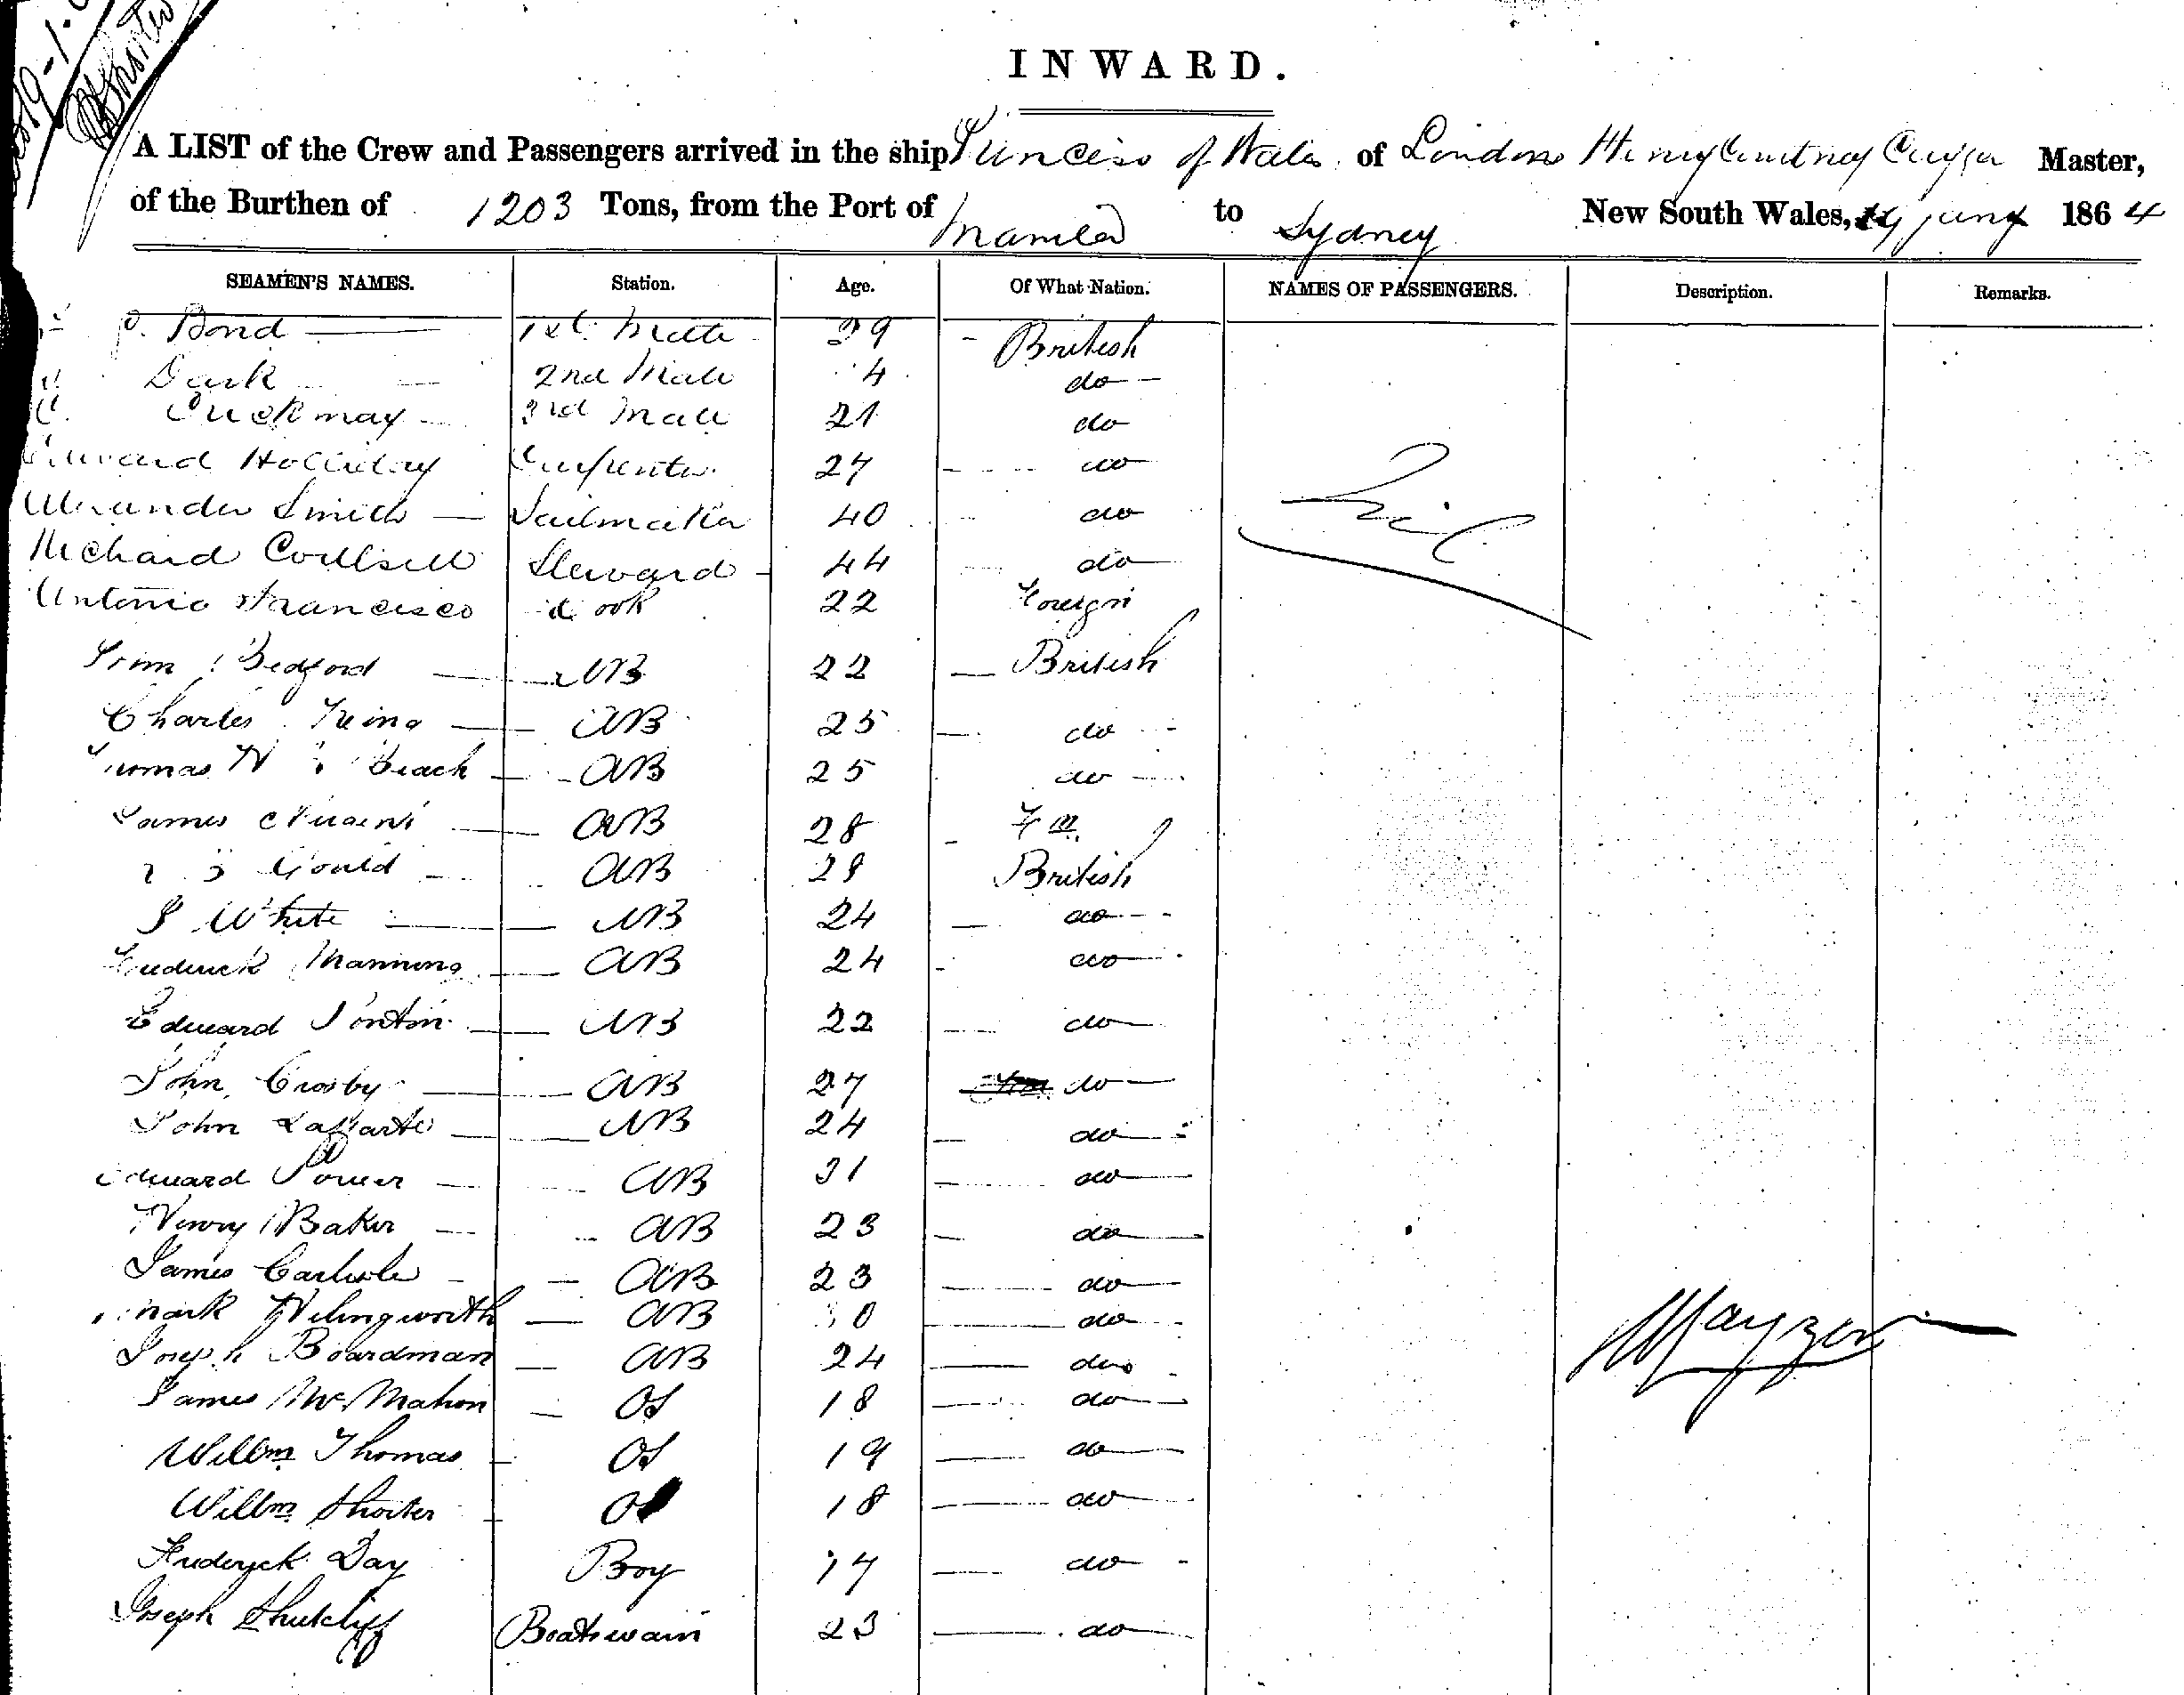 INWARD.
A LIST of the Crew and Passengers arrived in the ship Princess of Wales of London Henry Courtney Master,
of the Burthen of 1203 Tons, from the Port of Manila to Sydney New South Wales, 19 Jany 1864
SEAMEN'S NAMES. Station. Age. Of What Nation. NAMES OF PASSENGERS. Description. Remarks.
Bond 1st Mate 29 British
Dark 2nd Mate do
Tuckmay 3rd Mate 21 do
Edward Holliday Carpenter 27 do
Alexander Smith Sailmaker 40 do Nil
Richard Steward 44 do
Antonio Francisco Cook 22 Foreign
Bedford AB 22 British
Charles King AB 25 do
Thomas Beach AB 25 do
James AB 28 Fn
Gould AB 28 British
J White AB 24 do
Frederick Manning AB 24 do
Edward Ponton AB 22 do
John Crosby AB 27 do
John AB 24 do
Edward Power AB 31 do
Henry Baker AB 23 do
James Carlisle AB 23 do
Mark AB 30 do
Joseph Boardman AB 24 do
James McMahon OS 18 do
Willm Thomas OS 19 do
Willm Shorter OS 18 do
Frederyck Day Boy 17 do
Joseph Shutcliff Boatswain 23 do